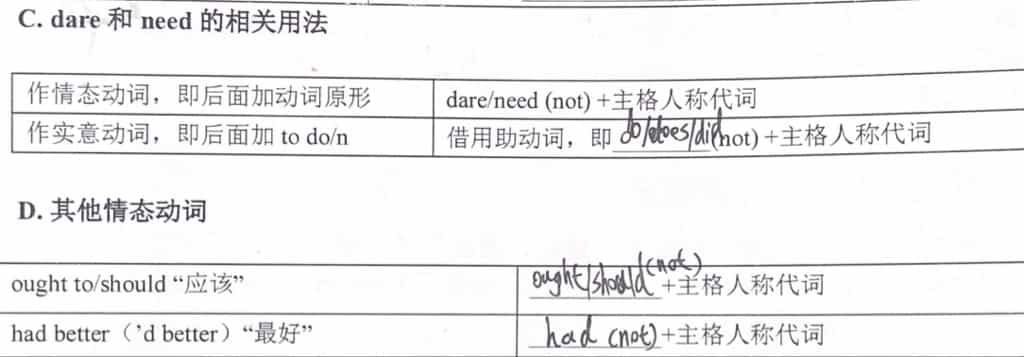 C. dare 和 need 的相关用法
作情态动词，即后面加动词原形 dare/need (not) +主格人称代词
作实意动词，即后面加 to do/n 借用助动词，即 do/does/did(not) +主格人称代词
D. 其他情态动词
ought to/should “应该” ought/should(not)+主格人称代词
had better（’d better）“最好” had (not)+主格人称代词